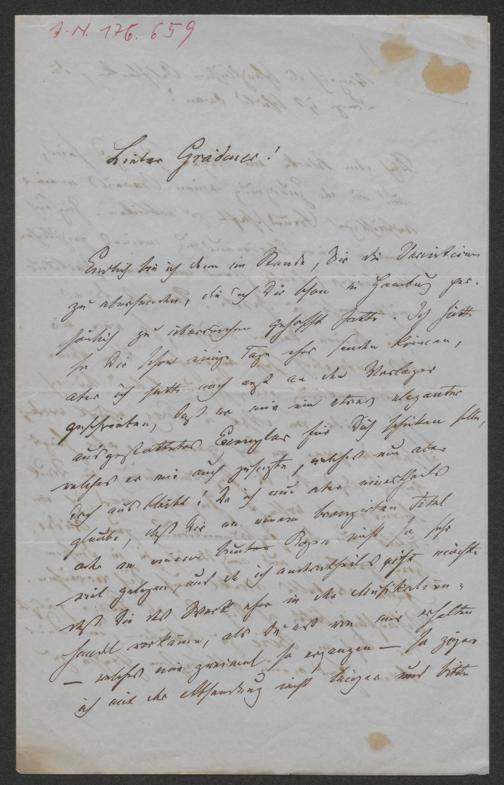 J.-N. 176.659
Lieber Grädener!
Endlich bin ich denn im Stande, Dir die Variationen
zu übersenden, die ich Dir schon in Hamburg per-
sönlich zu überreichen gehofft hatte. Ich hätte
sie Dir schon einige Tage eher senden können,
aber ich hatte noch erst an den Verleger
geschrieben, daß er mir ein etwas eleganter
ausgestattetes Exemplar für Dich schicken solle,
welches er mir auch zusagte, welches nun aber
noch ausbleibt! Da ich nun aber einestheils
glaube, daß Dir an einem bronzirten Titel
oder an einem bunten Bogen nicht so sehr
viel gelegen und ich anderntheils nicht möchte
daß Dir das Werk eher in der Musikalien-
handl vorkäme, als Du es von mir erhalten
— welches mir zweimal so ergangen — so zögere
ich mit der Absendung nicht länger und bitte